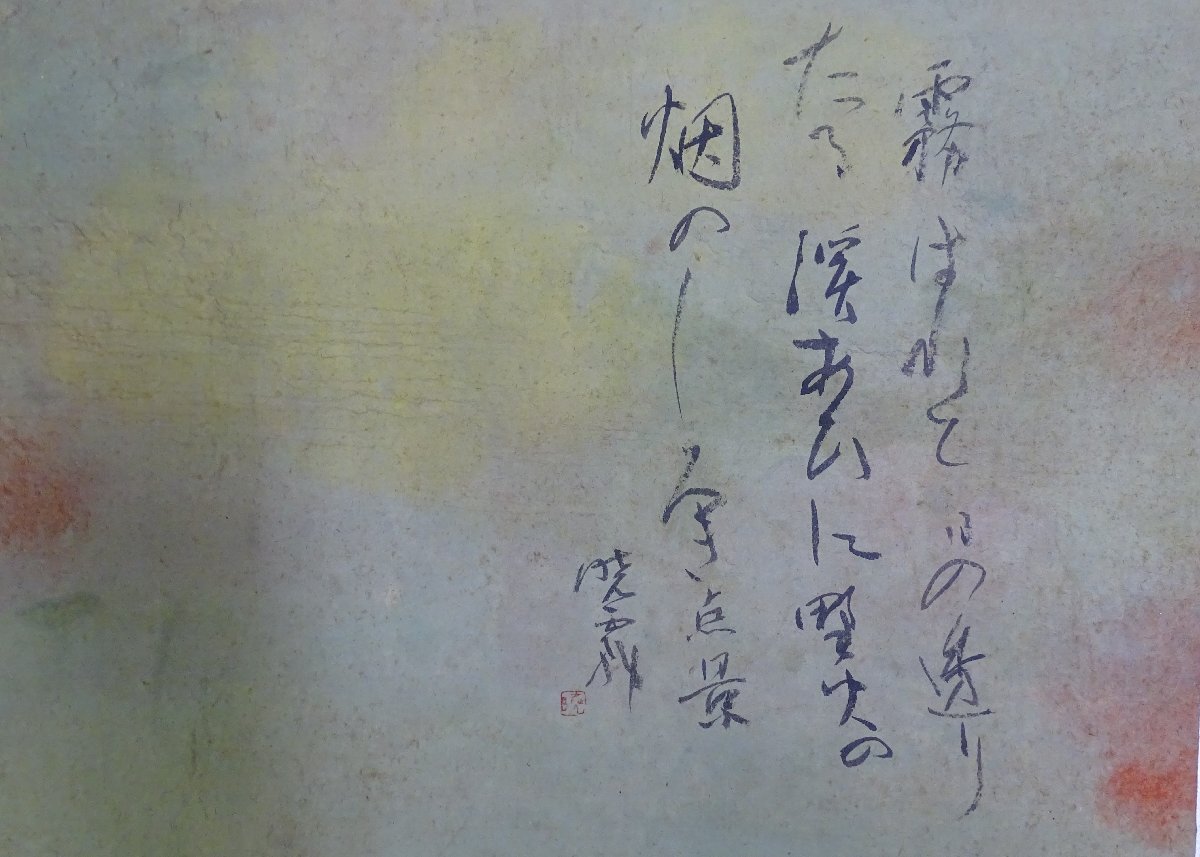 霧はれて日の透り
たる渓あひに野火の
烟のしるき点景
暁